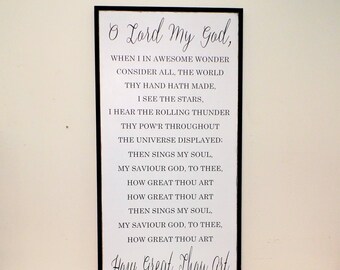 O Lord My God,
WHEN I IN AWESOME WONDER
CONSIDER ALL, THE WORLD
THY HAND HATH MADE,
I SEE THE STARS,
I HEAR THE ROLLING THUNDER
THY POW'R THROUGHOUT
THE UNIVERSE DISPLAYED;
THEN SINGS MY SOUL,
MY SAVIOUR GOD, TO THEE,
HOW GREAT THOU ART
HOW GREAT THOU ART
THEN SINGS MY SOUL,
MY SAVIOUR GOD, TO THEE,
HOW GREAT THOU ART
How Great Thou Art